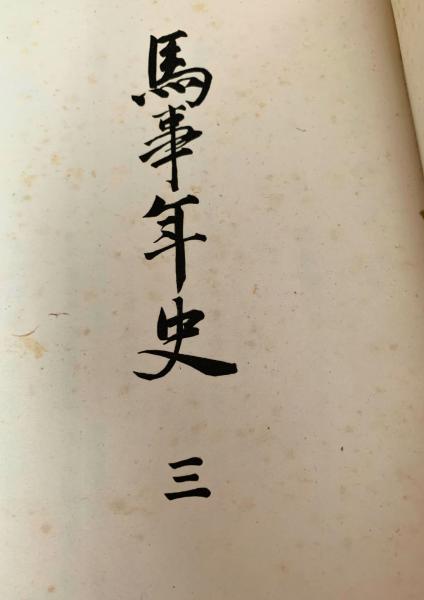 馬事年史 三